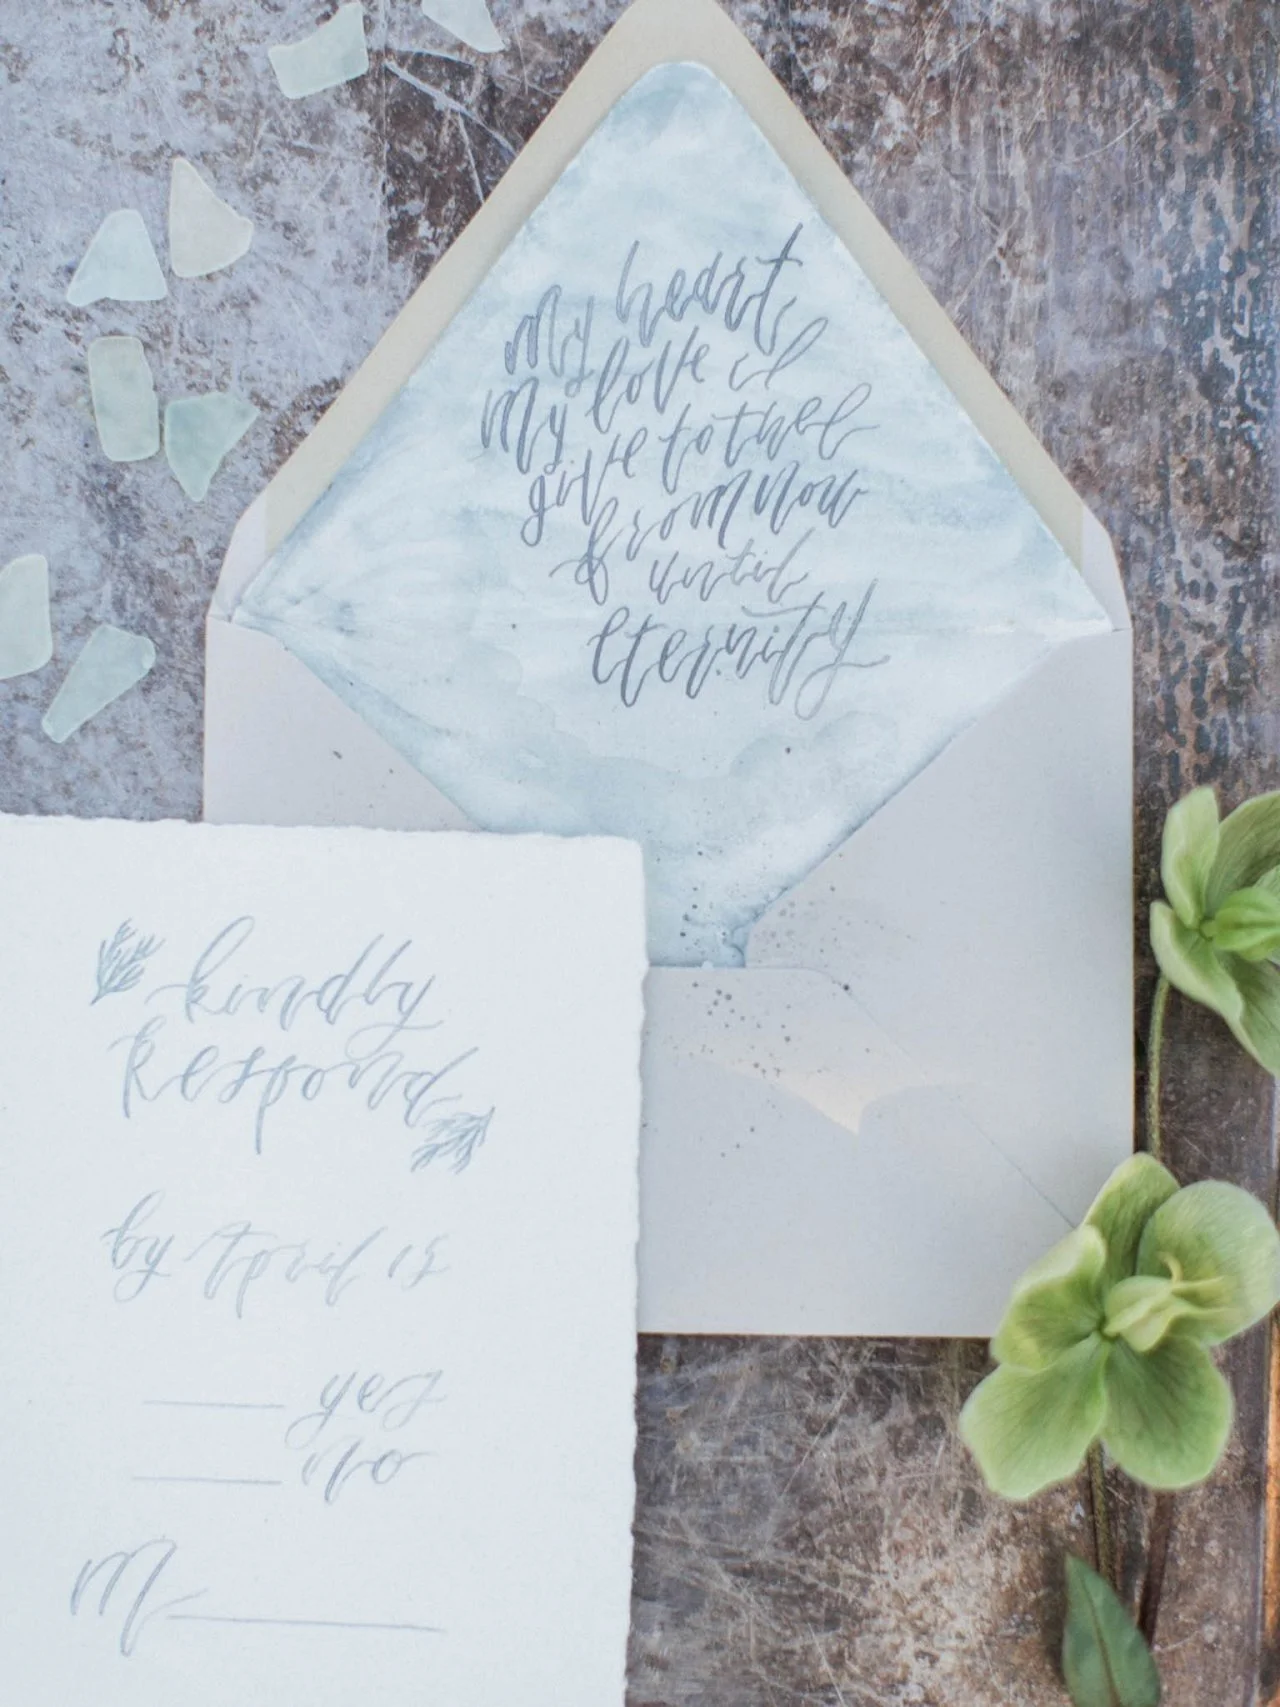 my heart,
my love I
give to thee
from now
until
eternity
kindly
respond
by April 15
yes
no
M